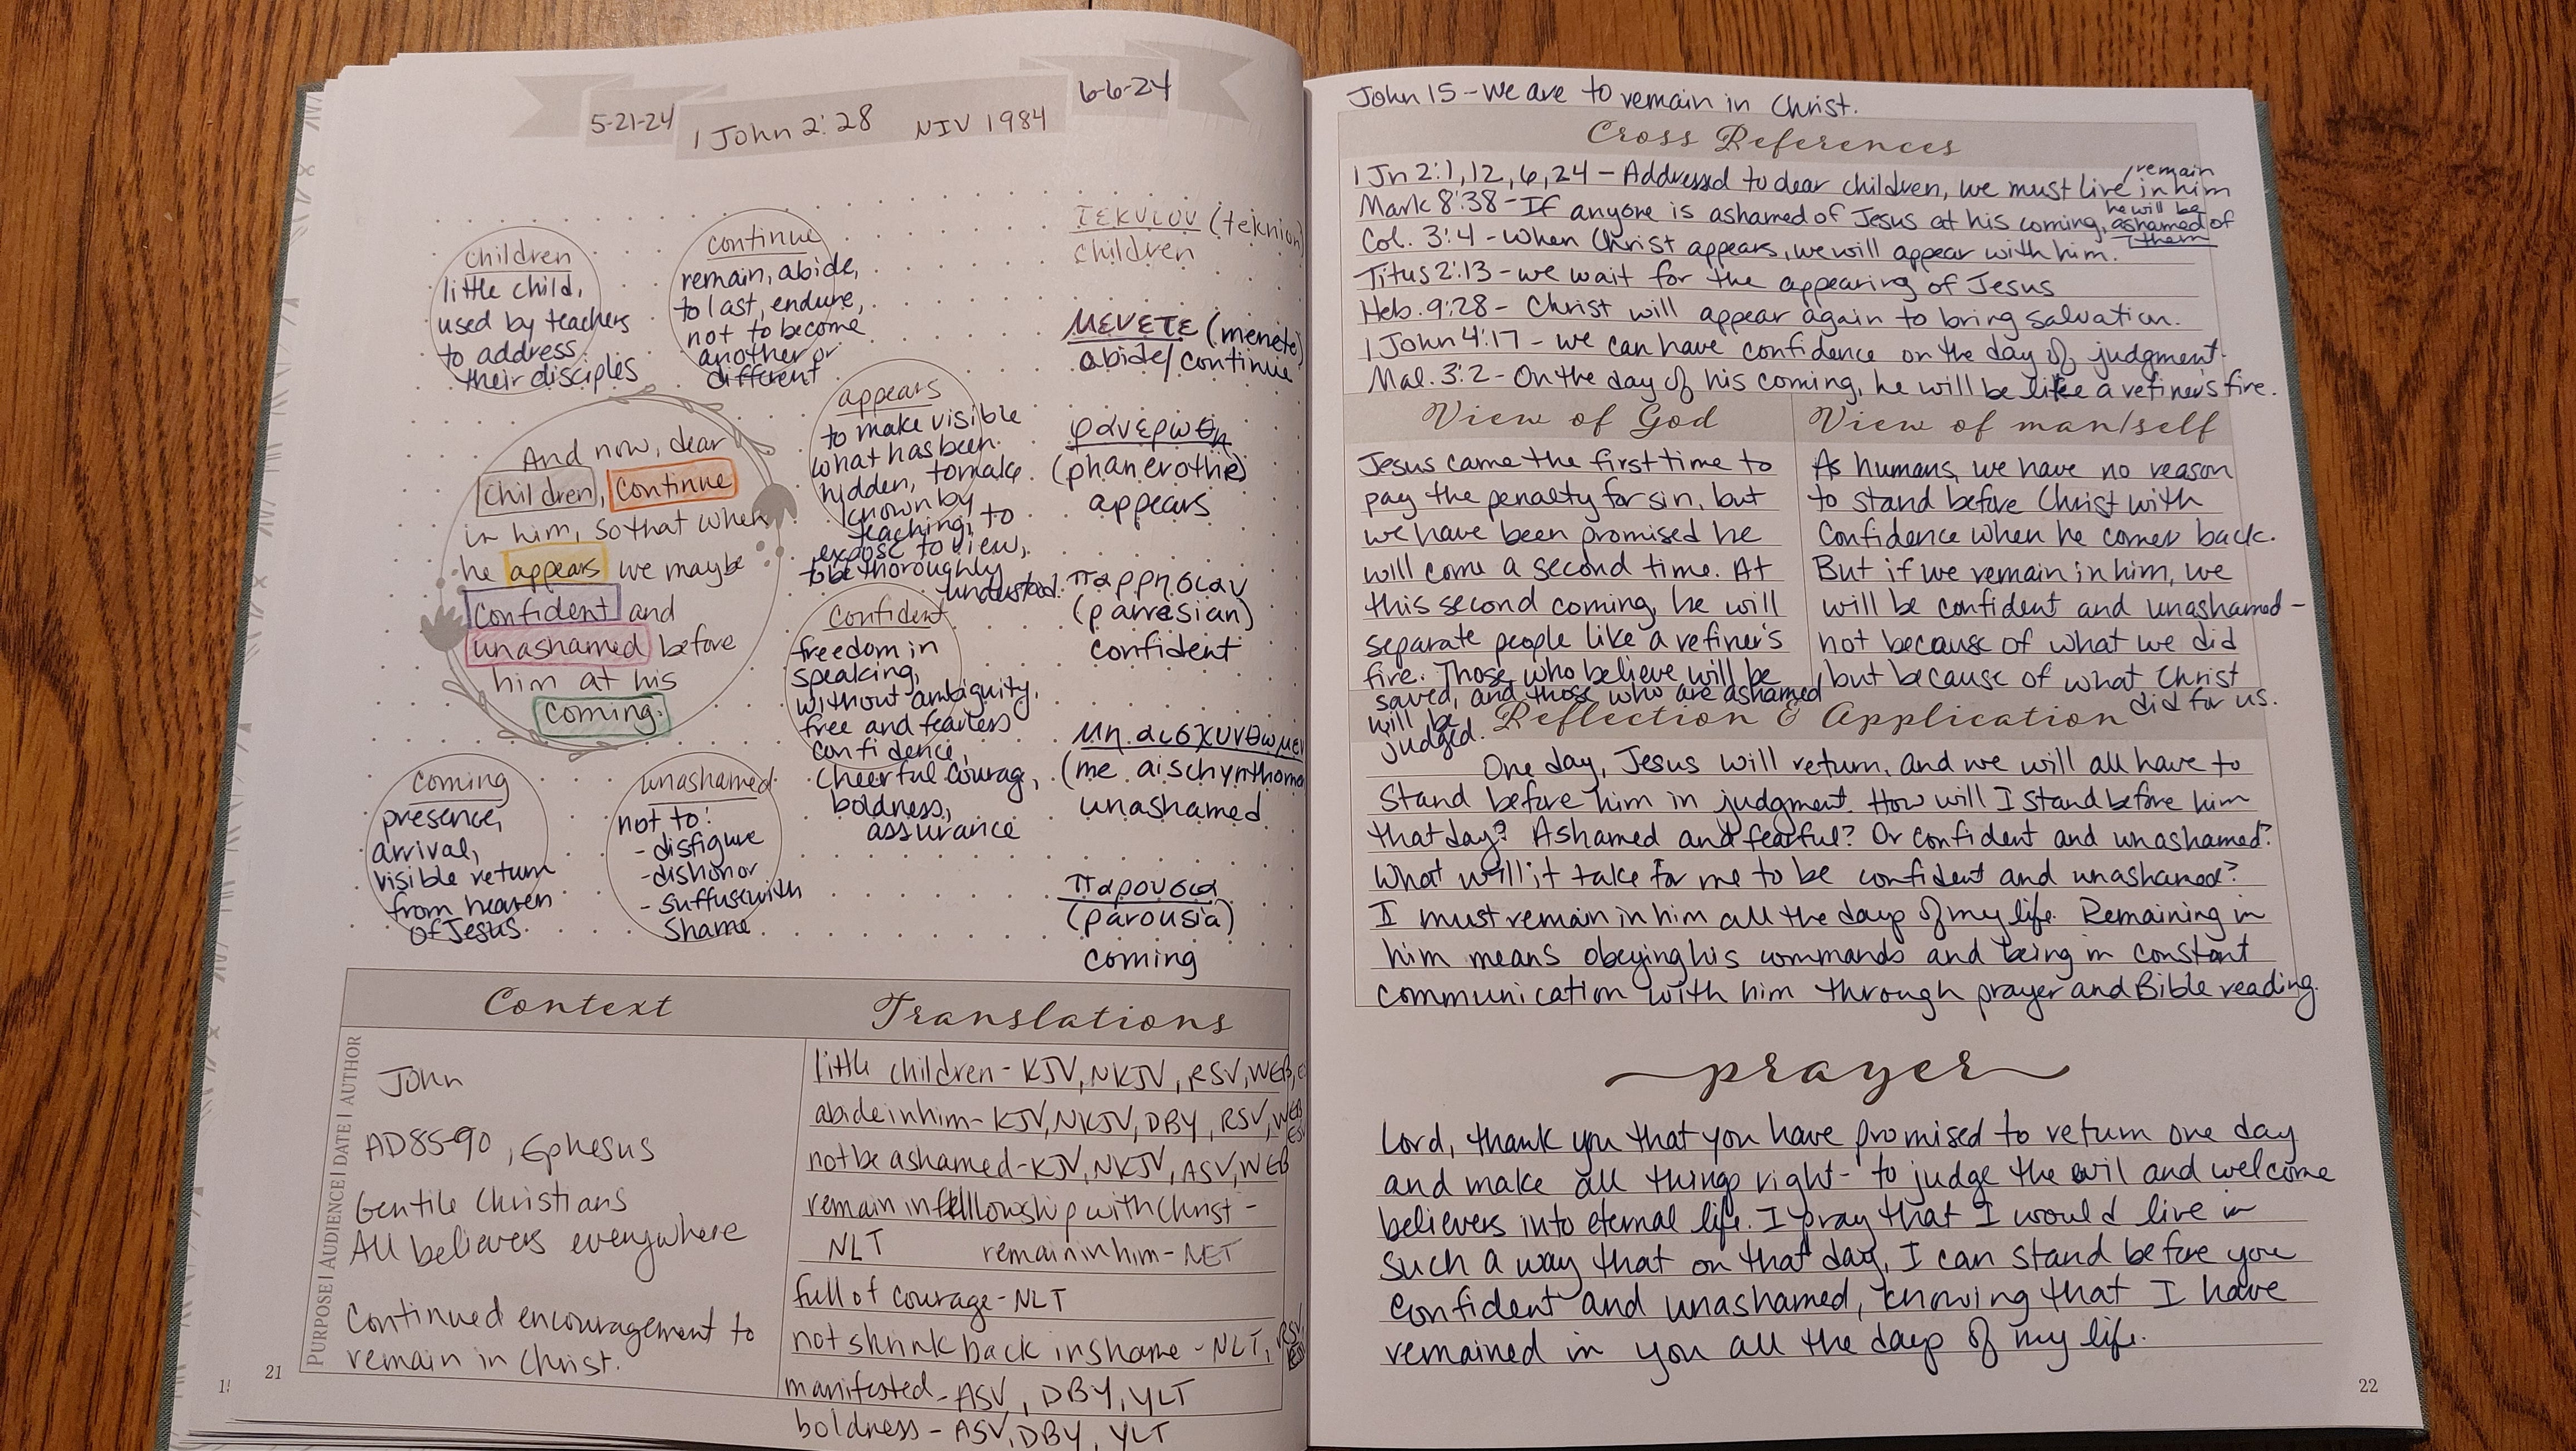 5-21-24
1 John 2:28 NIV 1984
6-6-24
children
little child,
used by teachers
to address
their disciples
continue
remain, abide,
to last, endure,
not to become
another or
different
And now, dear
children, continue
in him, so that when
he appears we may be
confident and
unashamed before
him at his
coming.
appears
to make visible
what has been
hidden, to make
known by
teaching, to
expose to view,
to be thoroughly
understood.
confident
freedom in
speaking,
without ambiguity,
free and fearless
confidence,
cheerful courag,
boldness,
assurance
coming
presence,
arrival,
visible return
from heaven
of Jesus.
unashamed
not to:
- disfigure
- dishonor
- suffuse with
shame
τεκνιον (teknion)
children
μενετε (menete)
abide/continue
φανερωθη
(phanerothe)
appears
παρρησιαν
(parresian)
confident
μη αισχυνθωμεν
(me aischynthome
unashamed
παρουσια
(parousia)
coming
Context
PURPOSE | AUDIENCE | DATE | AUTHOR
John
AD85-90, Ephesus
Gentile Christians
All believers everywhere
Continued encouragement to
remain in Christ.
Translations
little children - KJV, NKJV, RSV, WEB,
abide in him - KJV, NKJV, DBY, RSV, WEB
ESV
not be ashamed - KJV, NKJV, ASV, WEB
remain in fellowship with Christ -
NLT remain in him - NET
full of courage - NLT
not shrink back in shame - NLT, RSV,
manifested - ASV, DBY, YLT
boldness - ASV, DBY, YLT
21
John 15 - we are to remain in Christ.
Cross References
1 Jn 2:1, 12, 6, 24 - Addressed to dear children, we must live/remain in him
Mark 8:38 - If anyone is ashamed of Jesus at his coming, he will be ashamed of them
Col. 3:4 - when Christ appears, we will appear with him.
Titus 2:13 - we wait for the appearing of Jesus
Heb. 9:28 - Christ will appear again to bring salvation.
1 John 4:17 - we can have confidence on the day of judgment.
Mal. 3:2 - On the day of his coming, he will be like a refiner's fire.
View of God
Jesus came the first time to
pay the penalty for sin, but
we have been promised he
will come a second time. At
this second coming, he will
separate people like a refiner's
fire. Those who believe will be
saved, and those who are ashamed
will be
judged.
View of man/self
As humans, we have no reason
to stand before Christ with
Confidence when he comes back.
But if we remain in him, we
will be confident and unashamed -
not because of what we did
but because of what Christ
did for us.
Reflection & Application
One day, Jesus will return, and we will all have to
stand before him in judgment. How will I stand before him
that day? Ashamed and fearful? Or confident and unashamed?
What will it take for me to be confident and unashamed?
I must remain in him all the days of my life. Remaining in
him means obeying his commands and being in constant
communication with him through prayer and Bible reading.
prayer
Lord, thank you that you have promised to return one day
and make all things right - to judge the evil and welcome
believers into eternal life. I pray that I would live in
such a way that on that day, I can stand before you
confident and unashamed, knowing that I have
remained in you all the days of my life.
22